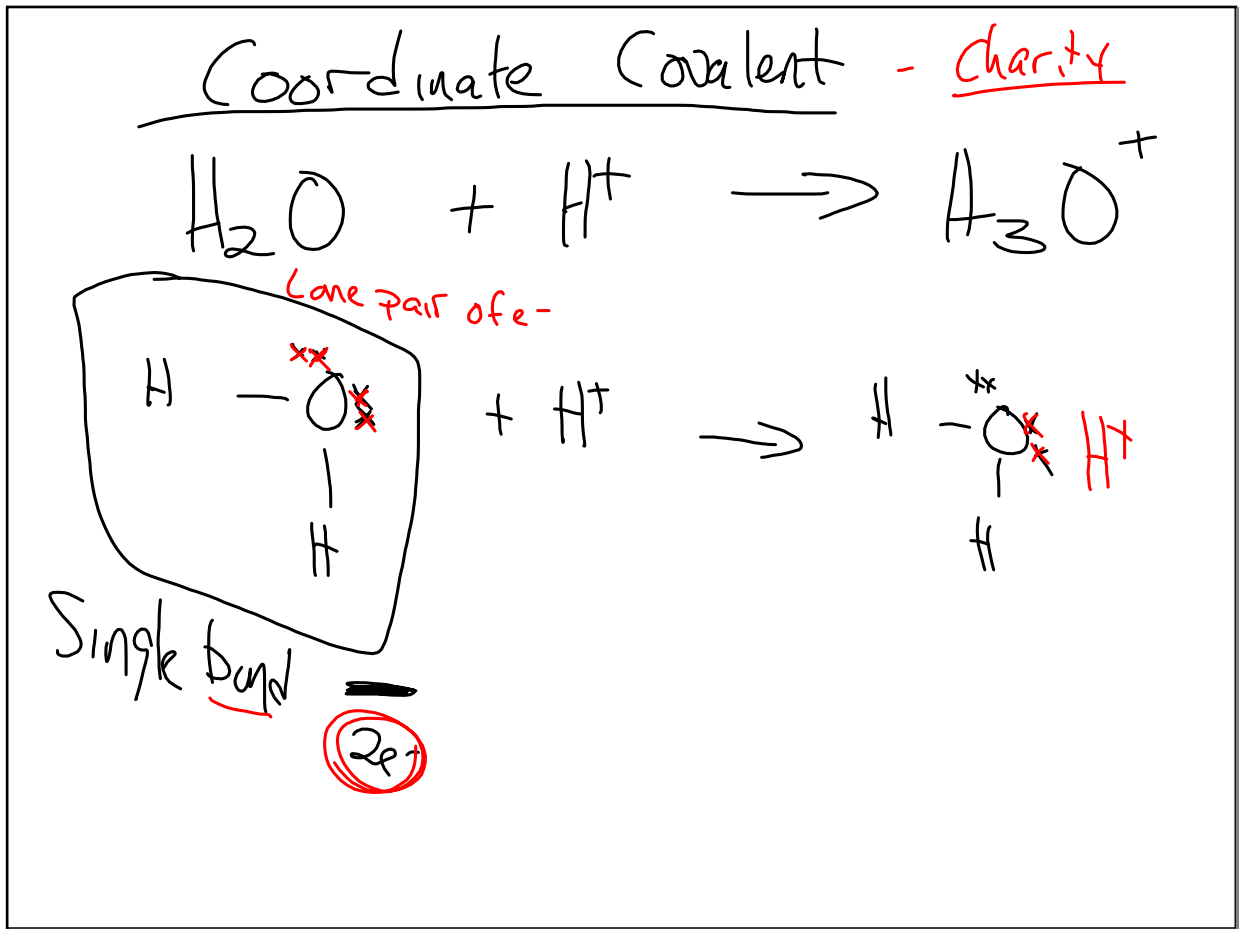 Coordinate Covalent - Charity
H₂O + H⁺ → H₃O⁺
Lone pair of e-
xx xx
H - O xx + H⁺ → H - O xx H⁺
| |
H H
Single bond —
2e-